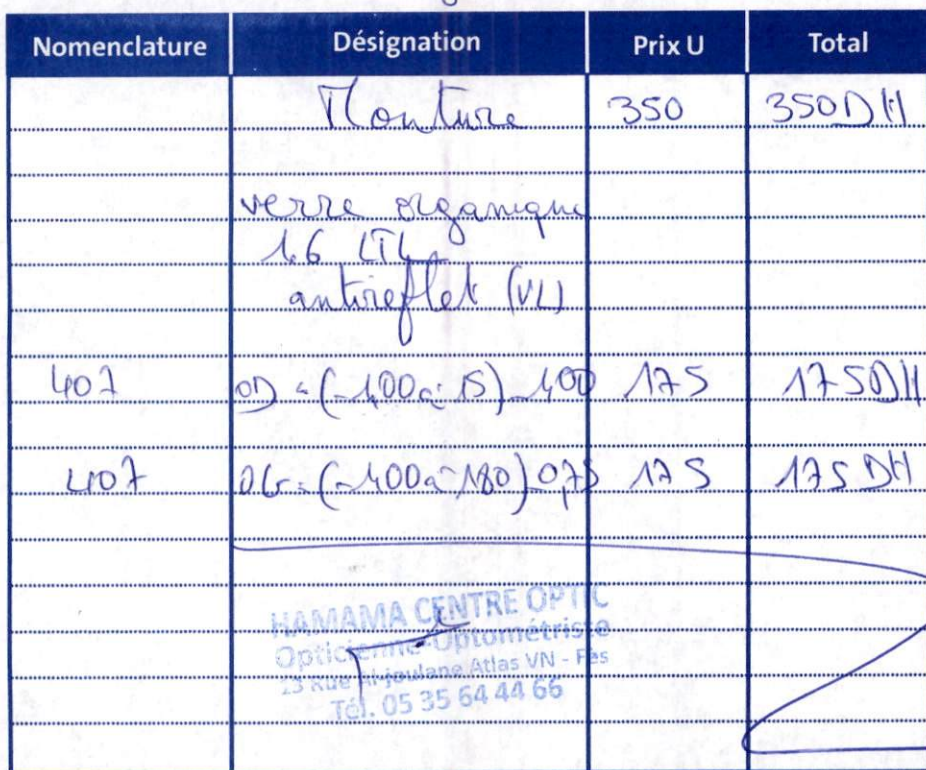 Nomenclature Désignation Prix U Total
Monture 350 350DH
verre organique
1.6
antireflet (VL)
407 OD = (-1,00 à 15) -1,00 175 175DH
407 OG = (-1,00 à 180) -0,75 175 175DH
HAMAMA CENTRE OPTIC
Opticienne-Optométriste
23 Rue Al-joulane Atlas VN - Fès
Tél. 05 35 64 44 66